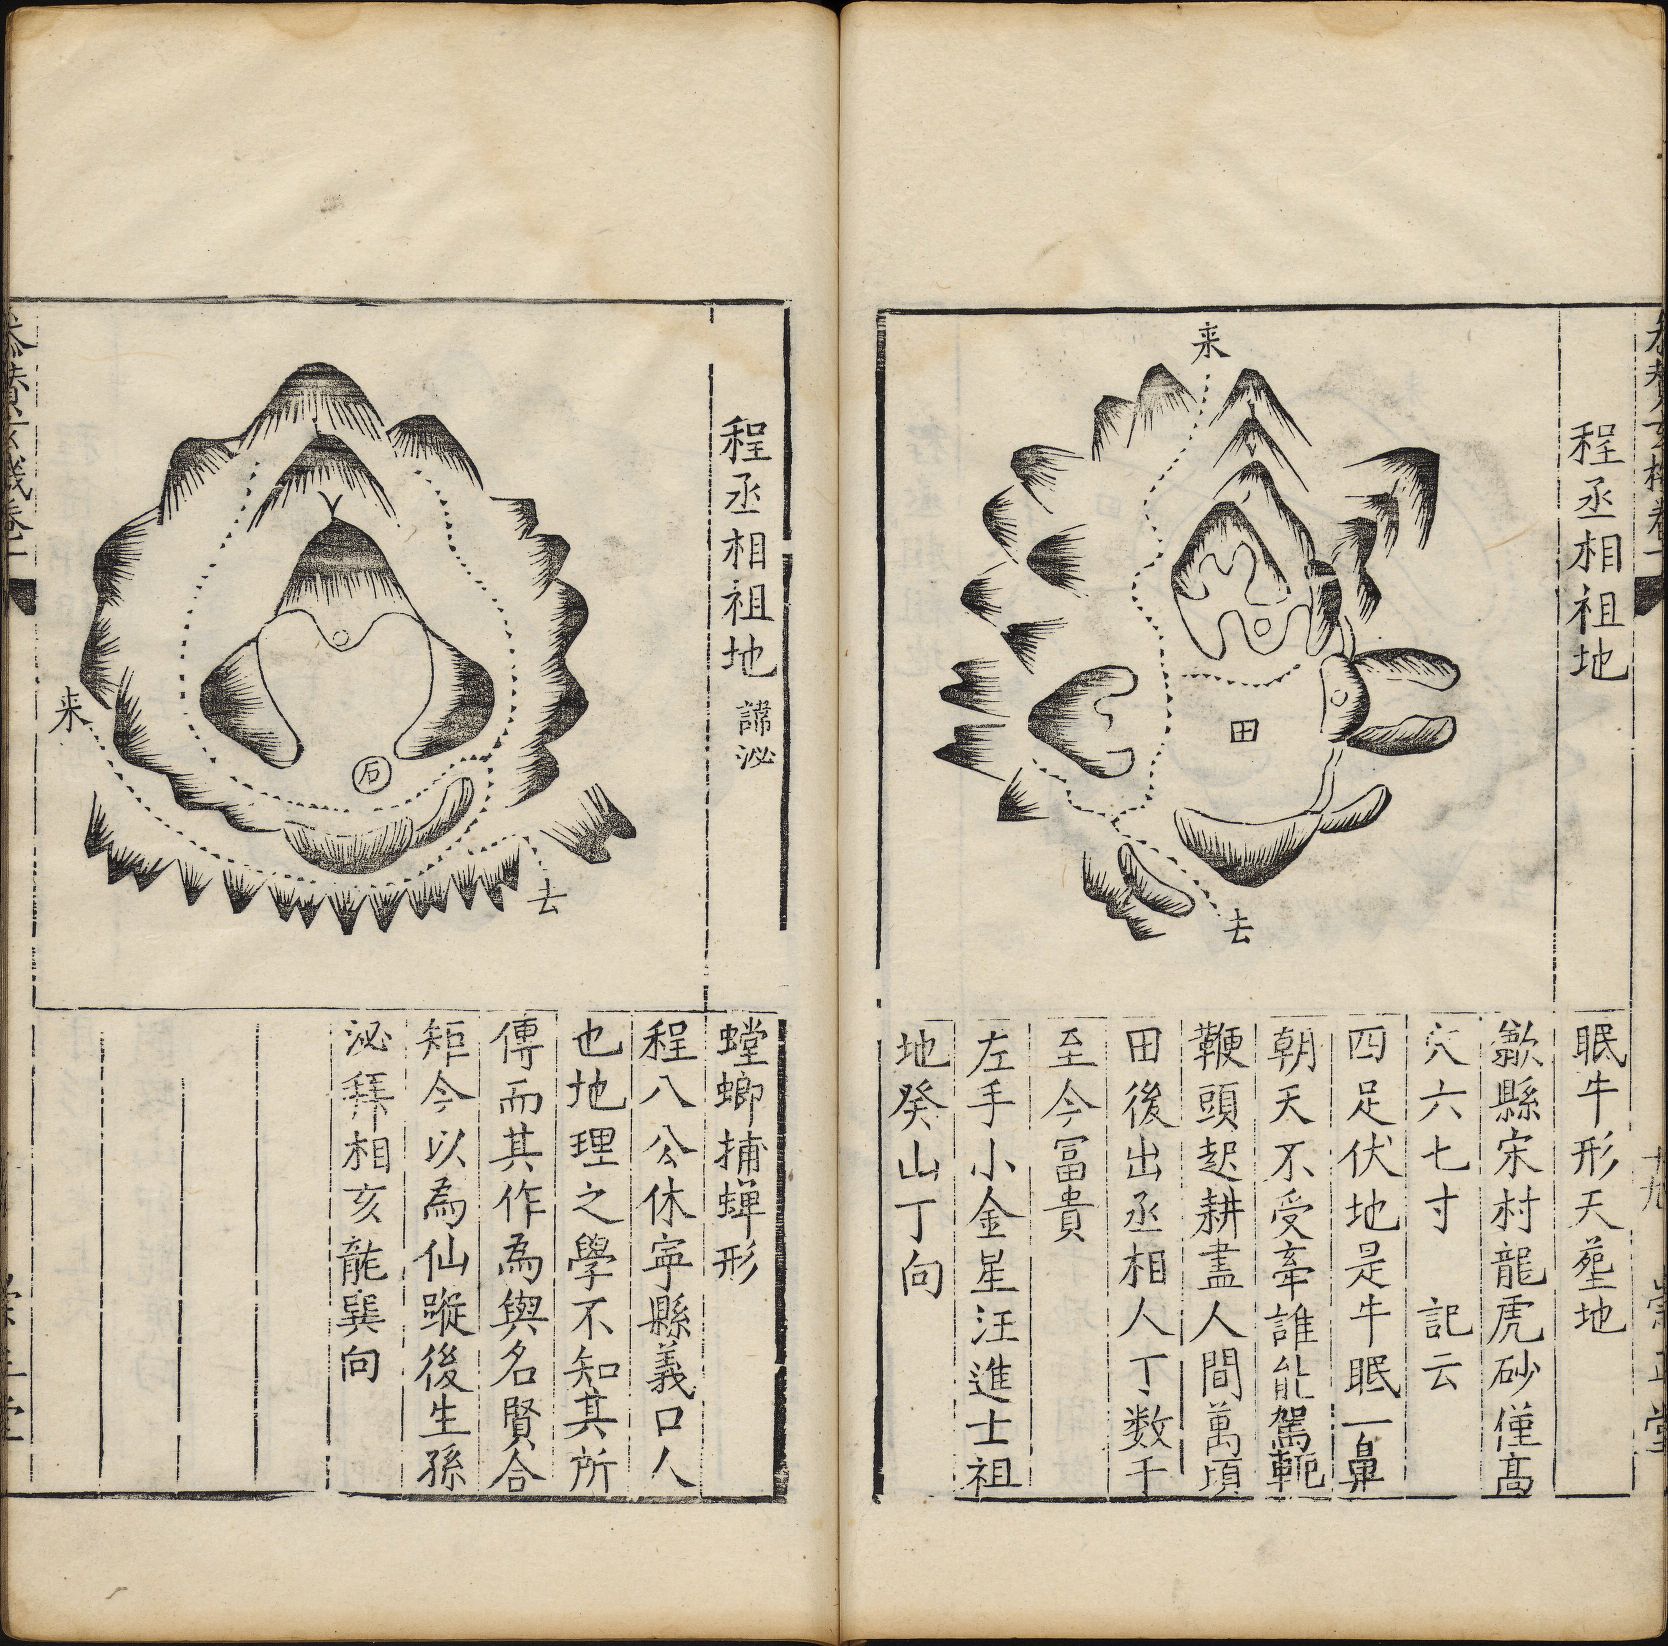 程丞相祖地
来
田
去
眠牛形天塟地
歙縣宋村龍虎砂僅高
穴六七寸　記云
四足伏地是牛眠一鼻
朝天不受牽誰能駕軛
鞭頭起耕盡人間萬頃
田後出丞相人丁数千
至今冨貴
左手小金星汪進士祖
地癸山丁向
程丞相祖地 諱泌
来
石
去
螳螂捕蟬形
程八公休寧縣義口人
也地理之學不知其所
傳而其作為與名賢合
矩今以為仙蹤後生孫
泌拜相亥龍巽向